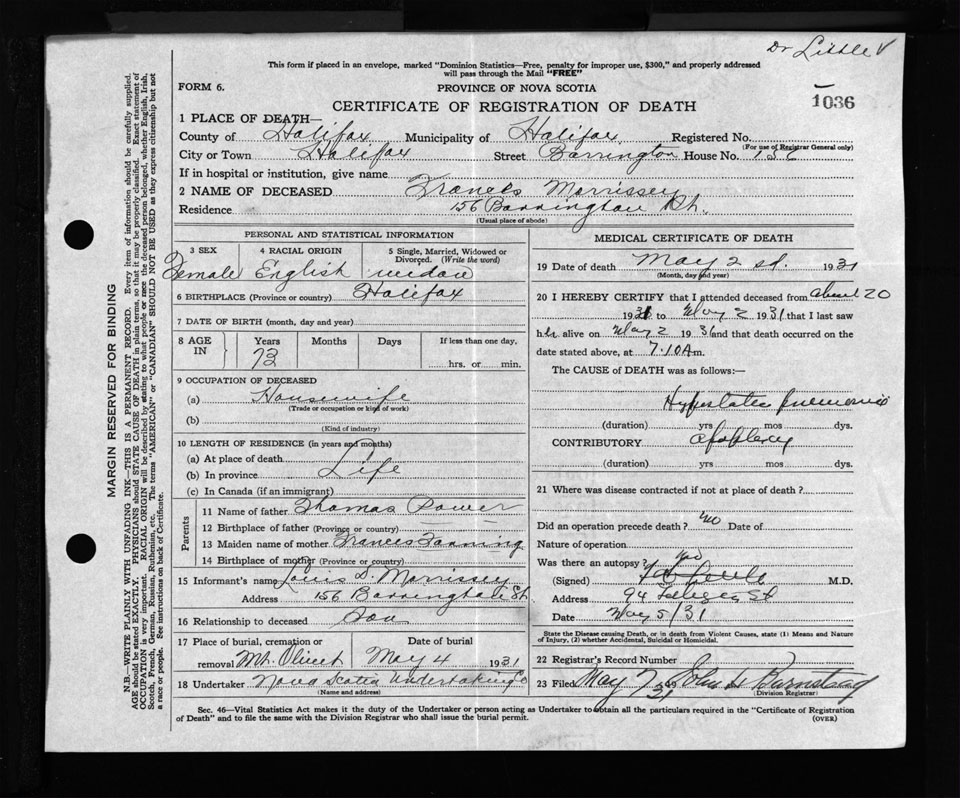 Dr Little √
This form if placed in an envelope, marked "Dominion Statistics—Free, penalty for improper use, $300," and properly addressed
will pass through the Mail "FREE"
FORM 6.
PROVINCE OF NOVA SCOTIA
CERTIFICATE OF REGISTRATION OF DEATH
1036
1 PLACE OF DEATH—
County of Halifax Municipality of Halifax Registered No.
(For use of Registrar General only)
City or Town Halifax Street Barrington House No. 156
If in hospital or institution, give name
2 NAME OF DECEASED Frances Morrissey
Residence 156 Barrington St.
(Usual place of abode)
PERSONAL AND STATISTICAL INFORMATION
3 SEX 4 RACIAL ORIGIN 5 Single, Married, Widowed or Divorced. (Write the word)
Female English widow
6 BIRTHPLACE (Province or country) Halifax
7 DATE OF BIRTH (month, day and year)
8 AGE IN Years Months Days If less than one day,
73 hrs. or min.
9 OCCUPATION OF DECEASED
(a) Housewife
(Trade or occupation or kind of work)
(b)
(Kind of industry)
10 LENGTH OF RESIDENCE (in years and months)
(a) At place of death
(b) In province Life
(c) In Canada (if an immigrant)
Parents
11 Name of father Thomas Power
12 Birthplace of father (Province or country)
13 Maiden name of mother Frances Fanning
14 Birthplace of mother (Province or country)
15 Informant's name Louis S. Morrissey
Address 156 Barrington St
16 Relationship to deceased Son
17 Place of burial, cremation or removal Date of burial
Mt. Olivet May 4 1931
18 Undertaker Nova Scotia Undertaking Co
(Name and address)
MEDICAL CERTIFICATE OF DEATH
19 Date of death May 2nd. 1931
(Month, day and year)
20 I HEREBY CERTIFY that I attended deceased from April 20
1931 to May 2 1931 that I last saw
her alive on May 2 1931 and that death occurred on
date stated above, at 7.10 A m.
The CAUSE of DEATH was as follows:—
Hypostatic pneumonia
(duration) yrs mos dys.
CONTRIBUTORY apoplexy
(duration) yrs mos dys.
21 Where was disease contracted if not at place of death?
Did an operation precede death? no Date of
Nature of operation
Was there an autopsy? no
(Signed) Little M.D.
Address 94 St
Date May 5/31
State the Disease causing Death, or in death from Violent Causes, state (1) Means and Nature
of Injury, (2) whether Accidental, Suicidal or Homicidal.
22 Registrar's Record Number
23 Filed May 7 31 John H Barnstead
(Division Registrar)
Sec. 46—Vital Statistics Act makes it the duty of the Undertaker or person acting as Undertaker to obtain all the particulars required in the "Certificate of Registration
of Death" and to file the same with the Division Registrar who shall issue the burial permit.
(OVER)
MARGIN RESERVED FOR BINDING
N.B.—WRITE PLAINLY WITH UNFADING INK—THIS IS A PERMANENT RECORD. Every item of information should be carefully supplied.
AGE should be stated EXACTLY. PHYSICIANS should STATE CAUSE OF DEATH in plain terms, so that it may be properly classified. Exact statement of
OCCUPATION is very important. RACIAL ORIGIN will be described by stating to what people or race the deceased person belonged, whether English, Irish,
Scotch, French, German, Russian, Ruthenian, etc. The terms "AMERICAN" or "CANADIAN" SHOULD NOT BE USED as they express citizenship but not
a race or people. See instructions on back of Certificate.